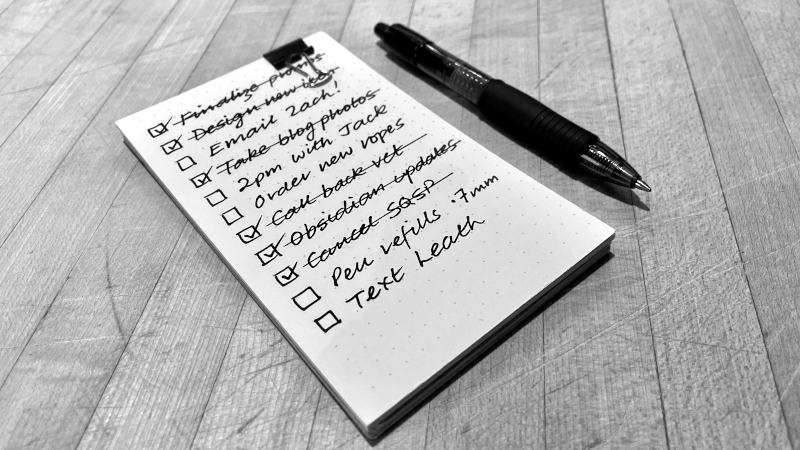 Finalize promos
Design new item
Email Zach!
Take blog photos
2pm with Jack
Order new ropes
Call back vet
Obsidian updates
Cancel SQSP
Pen refills .7mm
Text Leath